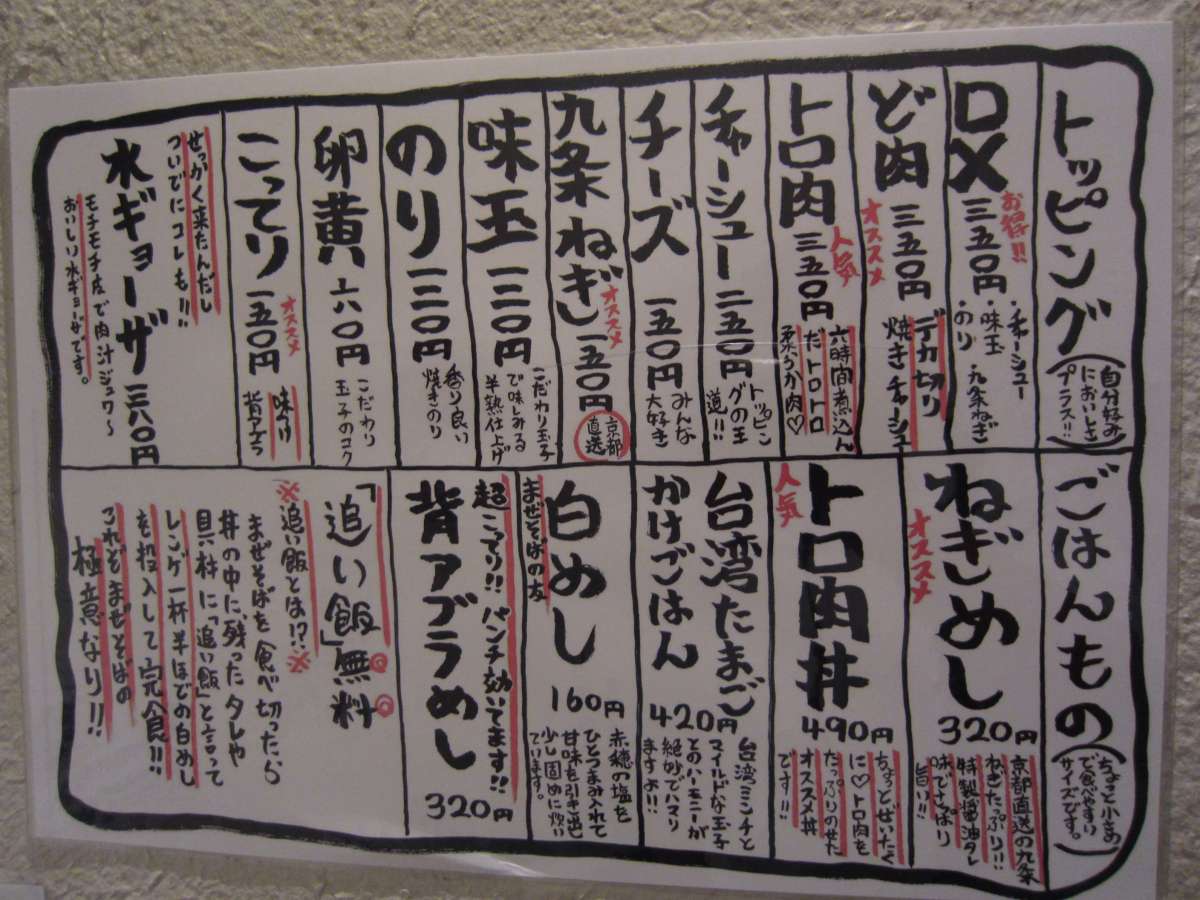 トッピング
(自分好み
においしさ
プラス!!)
DX
三五〇円
お得!!
・チャーシュー
・味玉
・のり ・九条ねぎ
ど肉
三五〇円
オススメ
デカ切り
焼きチャーシュー
トロ肉
三五〇円
人気
六時間煮込ん
だ トロトロ
柔らか肉♡
チャーシュー
二五〇円
トッピン
グの王
道!!
チーズ
一五〇円
みんな
大好き
九条ねぎ
一五〇円
オススメ
京都
直送
味玉
一二〇円
こだわり玉子
で味しみる
半熟仕上げ
のり
一二〇円
香り良い
焼きのり
卵黄
六〇円
こだわり
玉子のコク
こってり
一五〇円
オススメ
味つけ
背アブラ
せっかく来たんだし
ついでにコレも!!
水ギョーザ
三八〇円
モチモチ皮で肉汁ジュワ〜
おいしい水ギョーザです。
ごはんもの
(ちょっと小さめ
で食べやすい
サイズです。)
ねぎめし
オススメ
320円
京都直送の九条
ねぎたっぷり!!
特製醤油タレ
味でさっぱり
旨い!!
トロ肉丼
人気
490円
ちょっとぜいたく
に♡トロ肉を
たっぷりのせた
オススメ丼
です!!
台湾たまご
かけごはん
420円
台湾ミンチと
マイルドな玉子
とのハーモニーが
絶妙でハマリ
ますよ!!
白めし
まぜそばの友
160円
赤穂の塩を
ひとつまみ入れて
甘味を引き出し
少し固めに炊い
ています。
超こってり!!パンチ効いてます!!
背アブラめし
320円
「追い飯」無料
※追い飯とは!?※
まぜそばを食べ切ったら
丼の中に残ったタレや
具材に「追い飯」と言って
レンゲ一杯半ほどの白めし
を投入して完食!!
これぞまぜそばの
極意なり!!